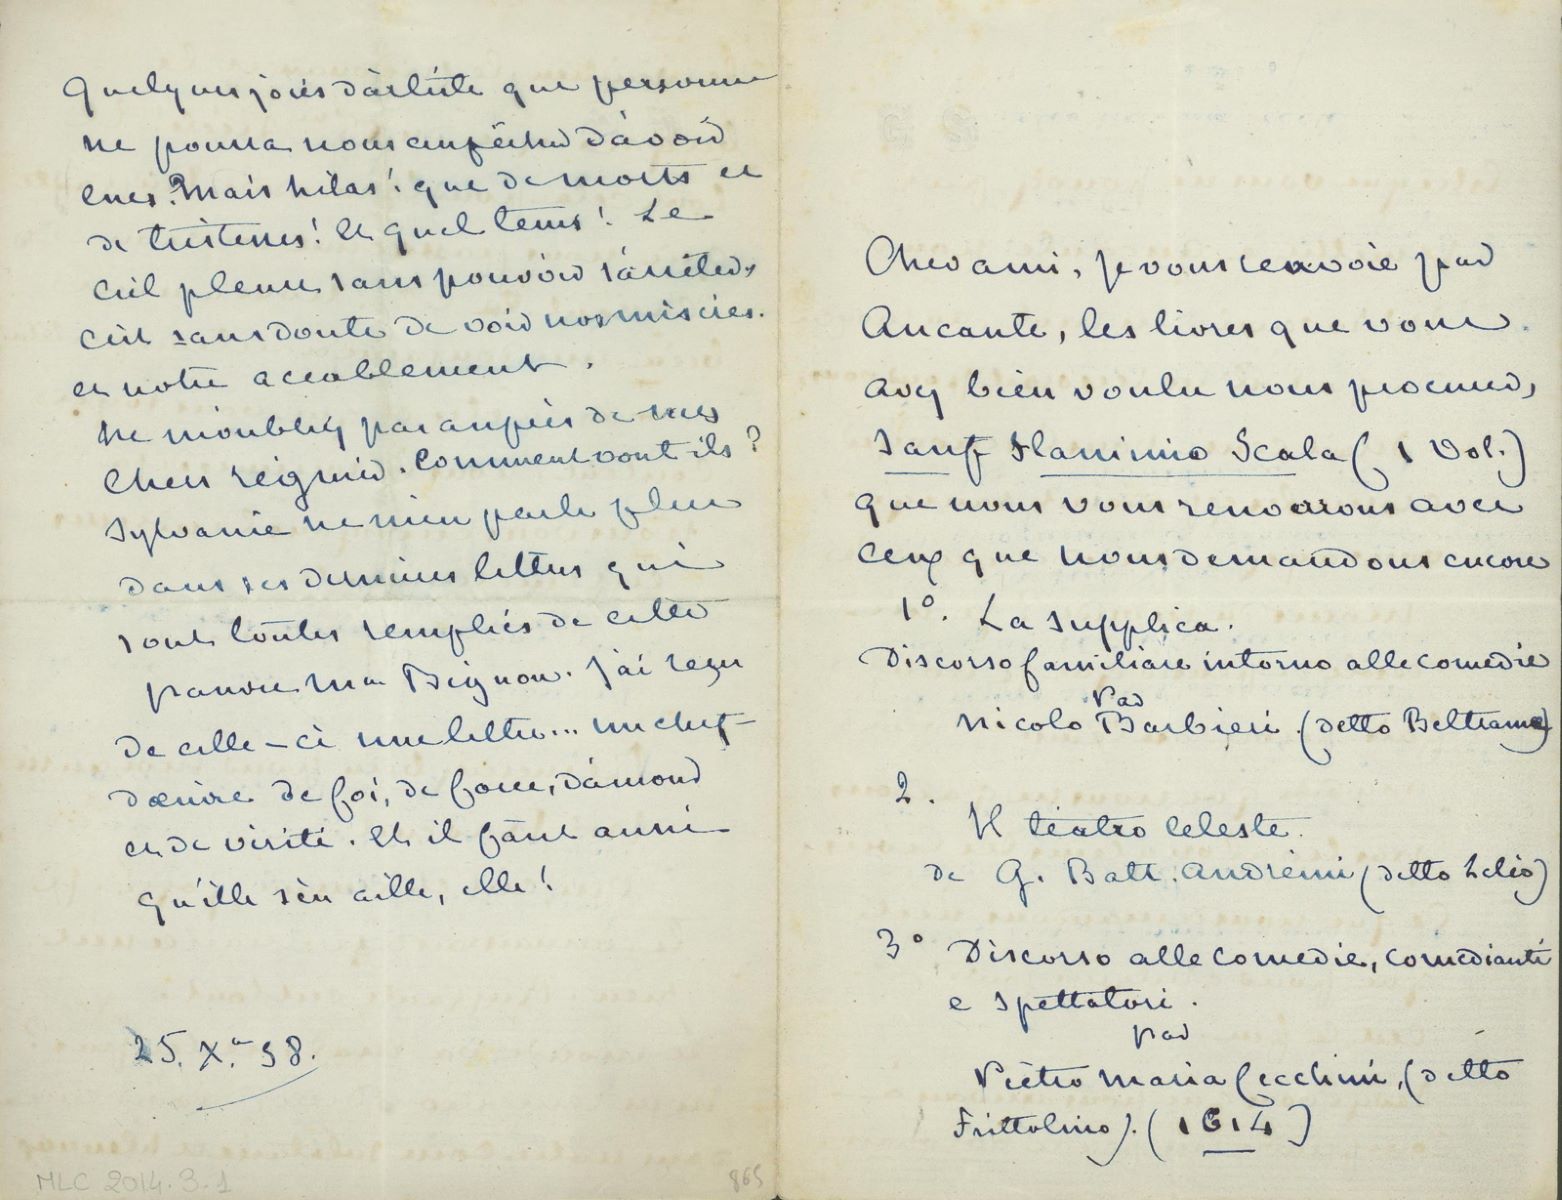 Cher ami, je vous renvoie par
Aucante, les livres que vous
avez bien voulu nous procurer,
sauf Flaminio Scala (1 Vol.)
que nous vous renverrons avec
ceux que nous demandons encore
1º. La supplica.
Discorso familiare intorno alle comedie
par
Nicolo Barbieri. (detto Beltrame)
2.
Il teatro Celeste.
de G. Batt. Andreini (detto Lelio)
3º Discorso alle comedie, comedianti
e spettatori.
par
Pietro Maria Cecchini, (detto
Frittolino). (1614)
Quelques joies d'artiste que personne
ne pourra nous empêcher d'avoir
eues. Mais hélas! que de morts et
de tristesses! Et quel tems! Le
Ciel pleure sans pouvoir s'arrêter,
c'est sans doute de voir nos misères.
et notre accablement.
Ne m'oubliez pas auprès de mes
chers Régnier. Comment vont ils?
Sylvanie ne m'en parle plus
dans ses dernières lettres qui
sont toutes remplies de cette
pauvre Mme Bignon. J'ai reçu
de celle-ci une lettre... un chef-
d'œuvre de foi, de force, d'amour
et de vérité. Et il faut aussi
qu'elle s'en aille, elle!
25. X. 58.
MLC 2014.3.1
865